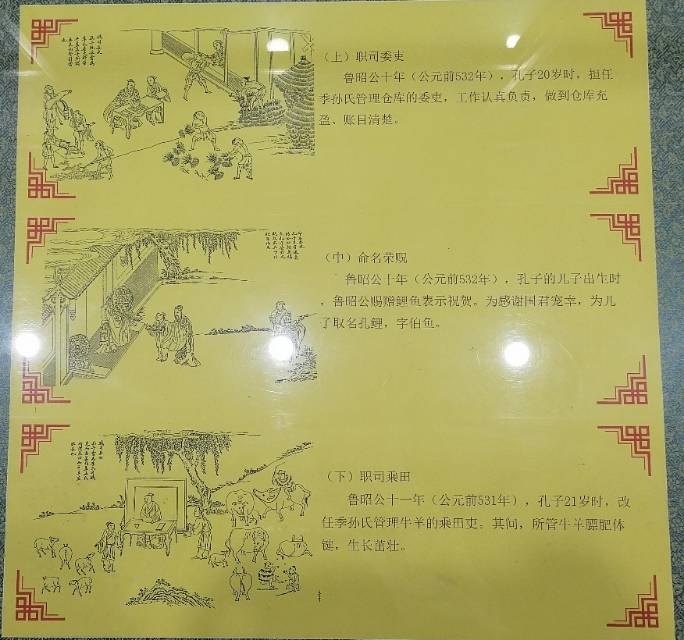 （上）职司委吏
鲁昭公十年（公元前532年），孔子20岁时，担任
季孙氏管理仓库的委吏，工作认真负责，做到仓库充
盈、账目清楚。
（中）命名荣贶
鲁昭公十年（公元前532年），孔子的儿子出生时
，鲁昭公赐赠鲤鱼表示祝贺。为感谢国君宠幸，为儿
子取名孔鲤，字伯鱼。
（下）职司乘田
鲁昭公十一年（公元前531年），孔子21岁时，改
任季孙氏管理牛羊的乘田吏。其间，所管牛羊膘肥体
诞，生长茁壮。